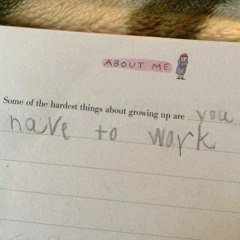 ABOUT ME
Some of the hardest things about growing up are you
have to work